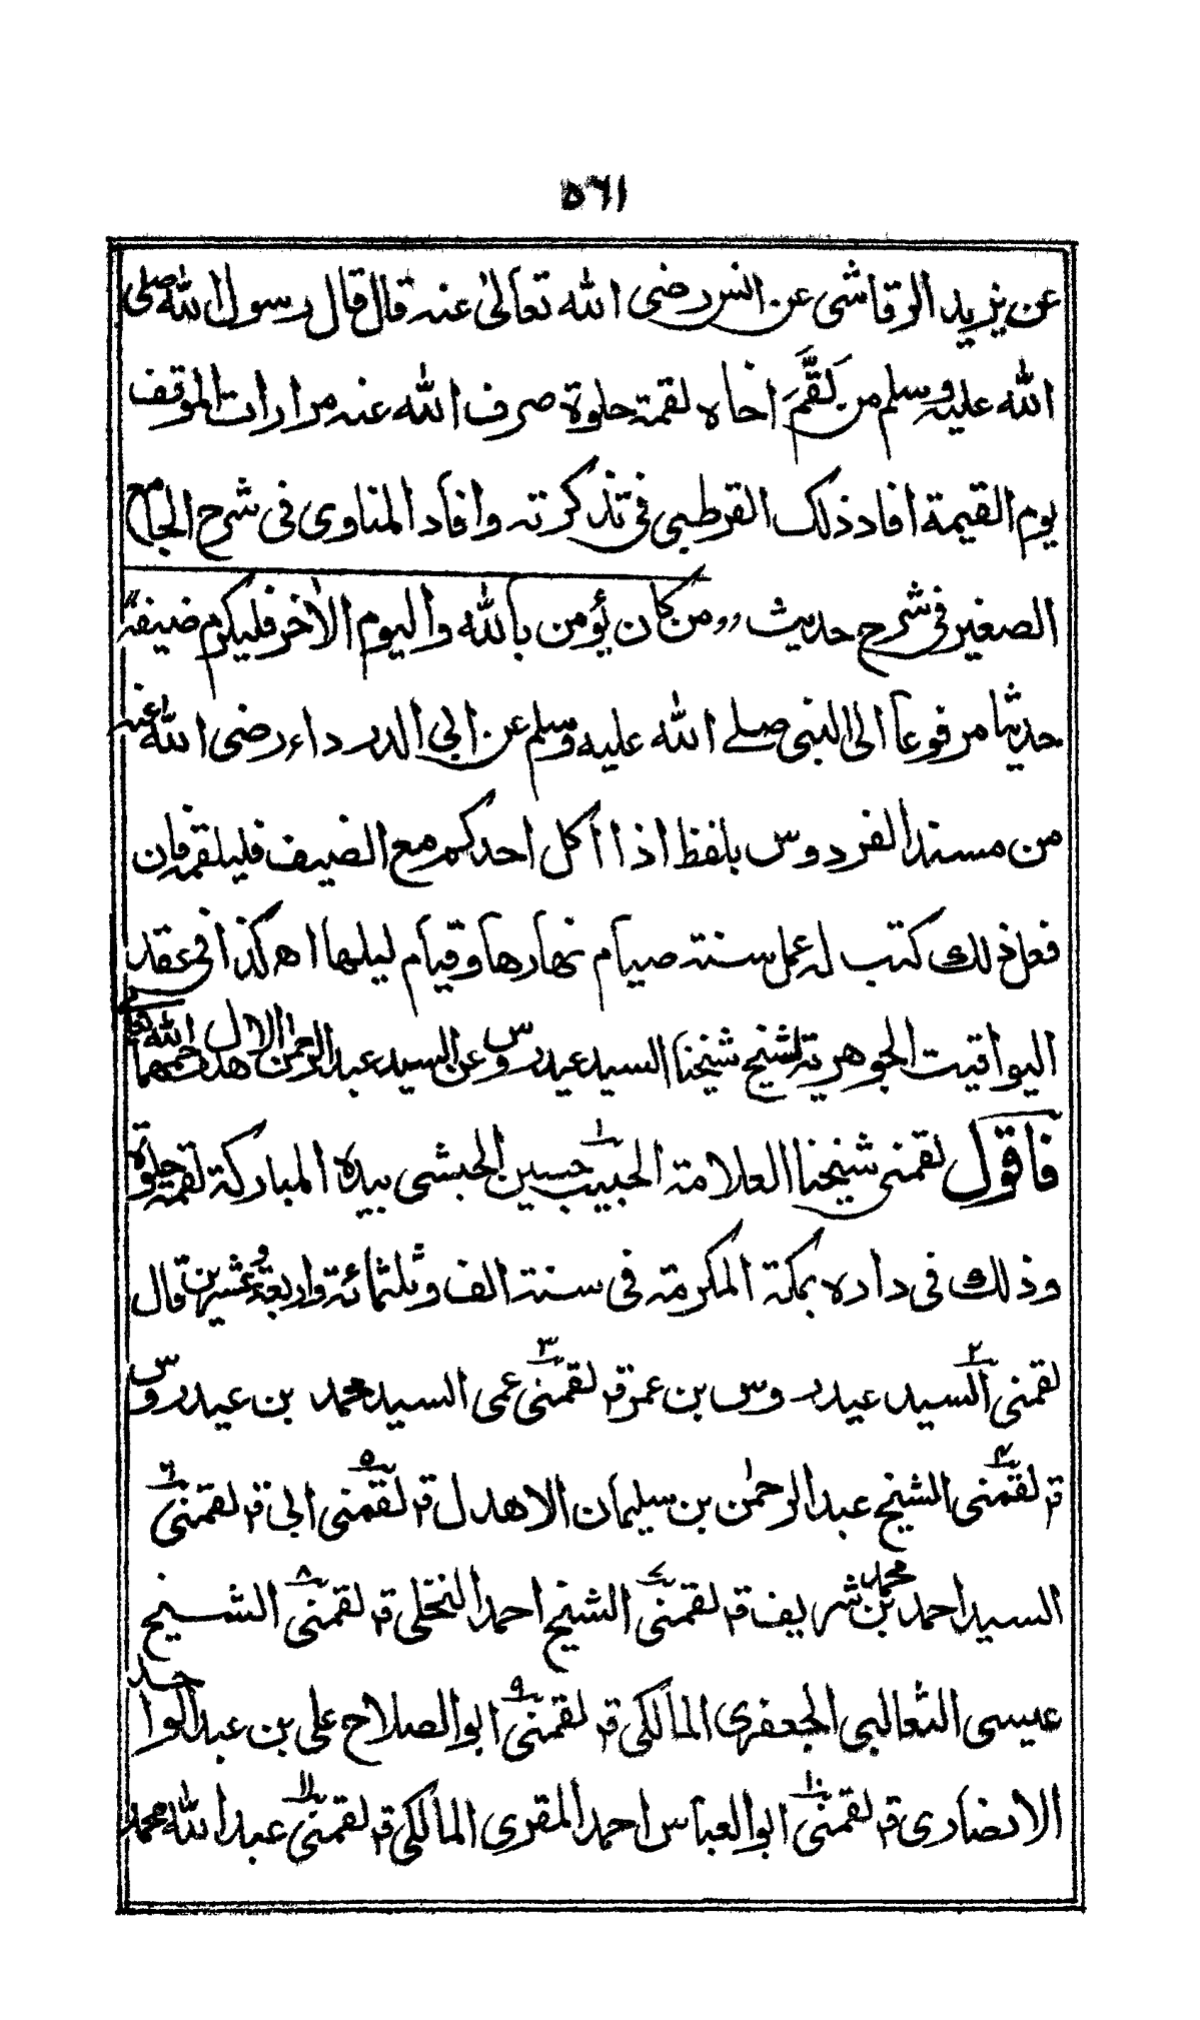 ٥٦١
عن يزيد الرقاشى عن انس رضى الله تعالىٰ عنه قال قال رسول الله صلى
الله عليه وسلم من لَقَّمَ اخاه لقمة حلوة صرف الله عنه مرارات الموقف
يوم القيمة افاد ذلك القرطبى فى تذكرته وافاد المناوى فى شرح الجامع
الصغير فى شرح حديث ,,من كان يؤمن بالله واليوم الأخر فليكرم ضيفه"
حديثا مرفوعا الى النبى صلے الله عليه وسلم عن ابى الدرداء رضى الله عنه
من مسند الفردوس بلفظ اذا اكل احدكم مع الضيف فليلقمه فان
فعل ذلك كتب له عمل سنة صيام نهارها وقيام ليلها اه كذا فى عقد
اليواقيت الجوهرية لشيخ شيخنا السيد عيدروس عن السيد عبد الرحمن الاهدل رحمهما الله تعالى
فاقول لقمنى شيخنا العلامة الحبيب حسين الحبشى بيده المباركة لقمة حلوة
وذلك فى داره بمكة المكرمة فى سنة الف وثلثمائة واربعة وعشرين قال
لقمنى السيد عيدروس بن عمر قال لقمنى عمى السيد محمد بن عيدروس
قال لقمنى الشيخ عبد الرحمٰن بن سليمان الاهدل قال لقمنى ابى قال لقمنى
السيد احمد بن محمد شريف قال لقمنى الشيخ احمد النخلى قال لقمنى الشيخ
عيسى الثعالبى الجعفرى المالكى قال لقمنى ابو الصلاح على بن عبد الواحد
الانصارى قال لقمنى ابو العباس احمد المقرى المالكى قال لقمنى عبد الله محمد